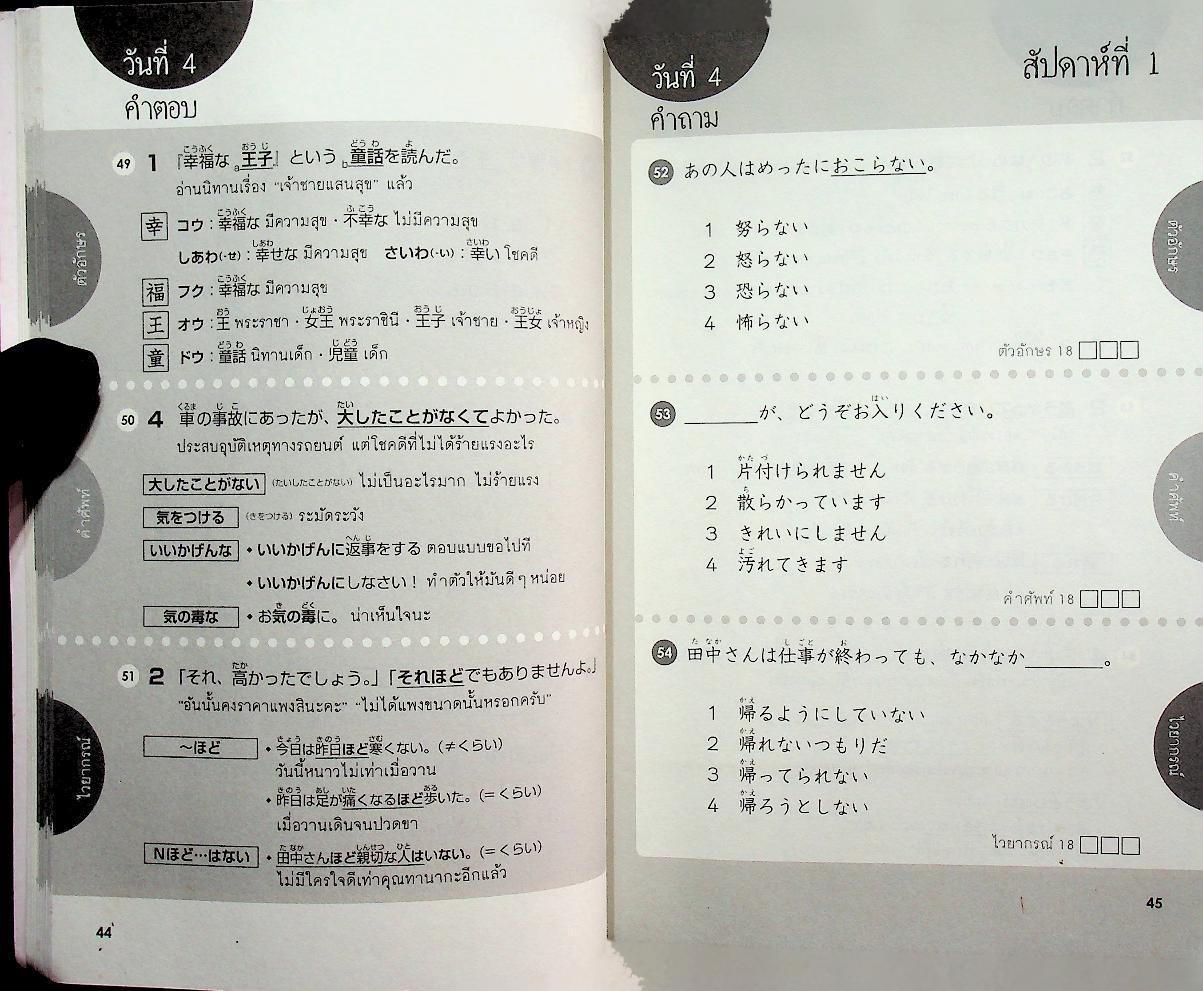 วันที่ 4
คำตอบ
49 1 『幸福な a王子』 という b童話を読んだ。
อ่านนิทานเรื่อง “เจ้าชายแสนสุข” แล้ว
幸 コウ : 幸福な มีความสุข・不幸な ไม่มีความสุข
しあわ(-せ) : 幸せな มีความสุข さいわ(-い) : 幸い โชคดี
福 フク : 幸福な มีความสุข
王 オウ : 王 พระราชา・女王 พระราชินี・王子 เจ้าชาย・王女 เจ้าหญิง
童 ドウ : 童話 นิทานเด็ก・児童 เด็ก
50 4 車の事故にあったが、大したことがなくてよかった。
ประสบอุบัติเหตุทางรถยนต์ แต่โชคดีที่ไม่ได้ร้ายแรงอะไร
大したことがない (たいしたことがない) ไม่เป็นอะไรมาก ไม่ร้ายแรง
気をつける (きをつける) ระมัดระวัง
いいかげんな ◆ いいかげんに返事をする ตอบแบบขอไปที
◆ いいかげんにしなさい! ทำตัวให้มันดีๆ หน่อย
気の毒な ◆ お気の毒に。 น่าเห็นใจนะ
51 2 「それ、高かったでしょう。」「それほどでもありませんよ。」
“อันนั้นคงราคาแพงสินะคะ” “ไม่ได้แพงขนาดนั้นหรอกครับ”
～ほど ◆ 今日は昨日ほど寒くない。(≠くらい)
วันนี้หนาวไม่เท่าเมื่อวาน
◆ 昨日は足が痛くなるほど歩いた。(=くらい)
เมื่อวานเดินจนปวดขา
Nほど…はない ◆ 田中さんほど親切な人はいない。(=くらい)
ไม่มีใครใจดีเท่าคุณทานากะอีกแล้ว
ตัวอักษร
คำศัพท์
ไวยากรณ์
44
วันที่ 4
คำถาม
สัปดาห์ที่ 1
52 あの人はめったにおこらない。
1 努らない
2 怒らない
3 恐らない
4 怖らない
ตัวอักษร 18 □□□
53 ______が、どうぞお入りください。
1 片付けられません
2 散らかっています
3 きれいにしません
4 汚れてきます
คำศัพท์ 18 □□□
54 田中さんは仕事が終わっても、なかなか______。
1 帰るようにしていない
2 帰れないつもりだ
3 帰ってられない
4 帰ろうとしない
ไวยากรณ์ 18 □□□
ตัวอักษร
คำศัพท์
ไวยากรณ์
45